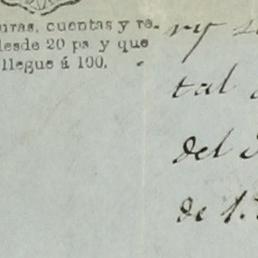 uras, cuentas y re-
desde 20 ps. y que
llegue á 100.
tal
del
de